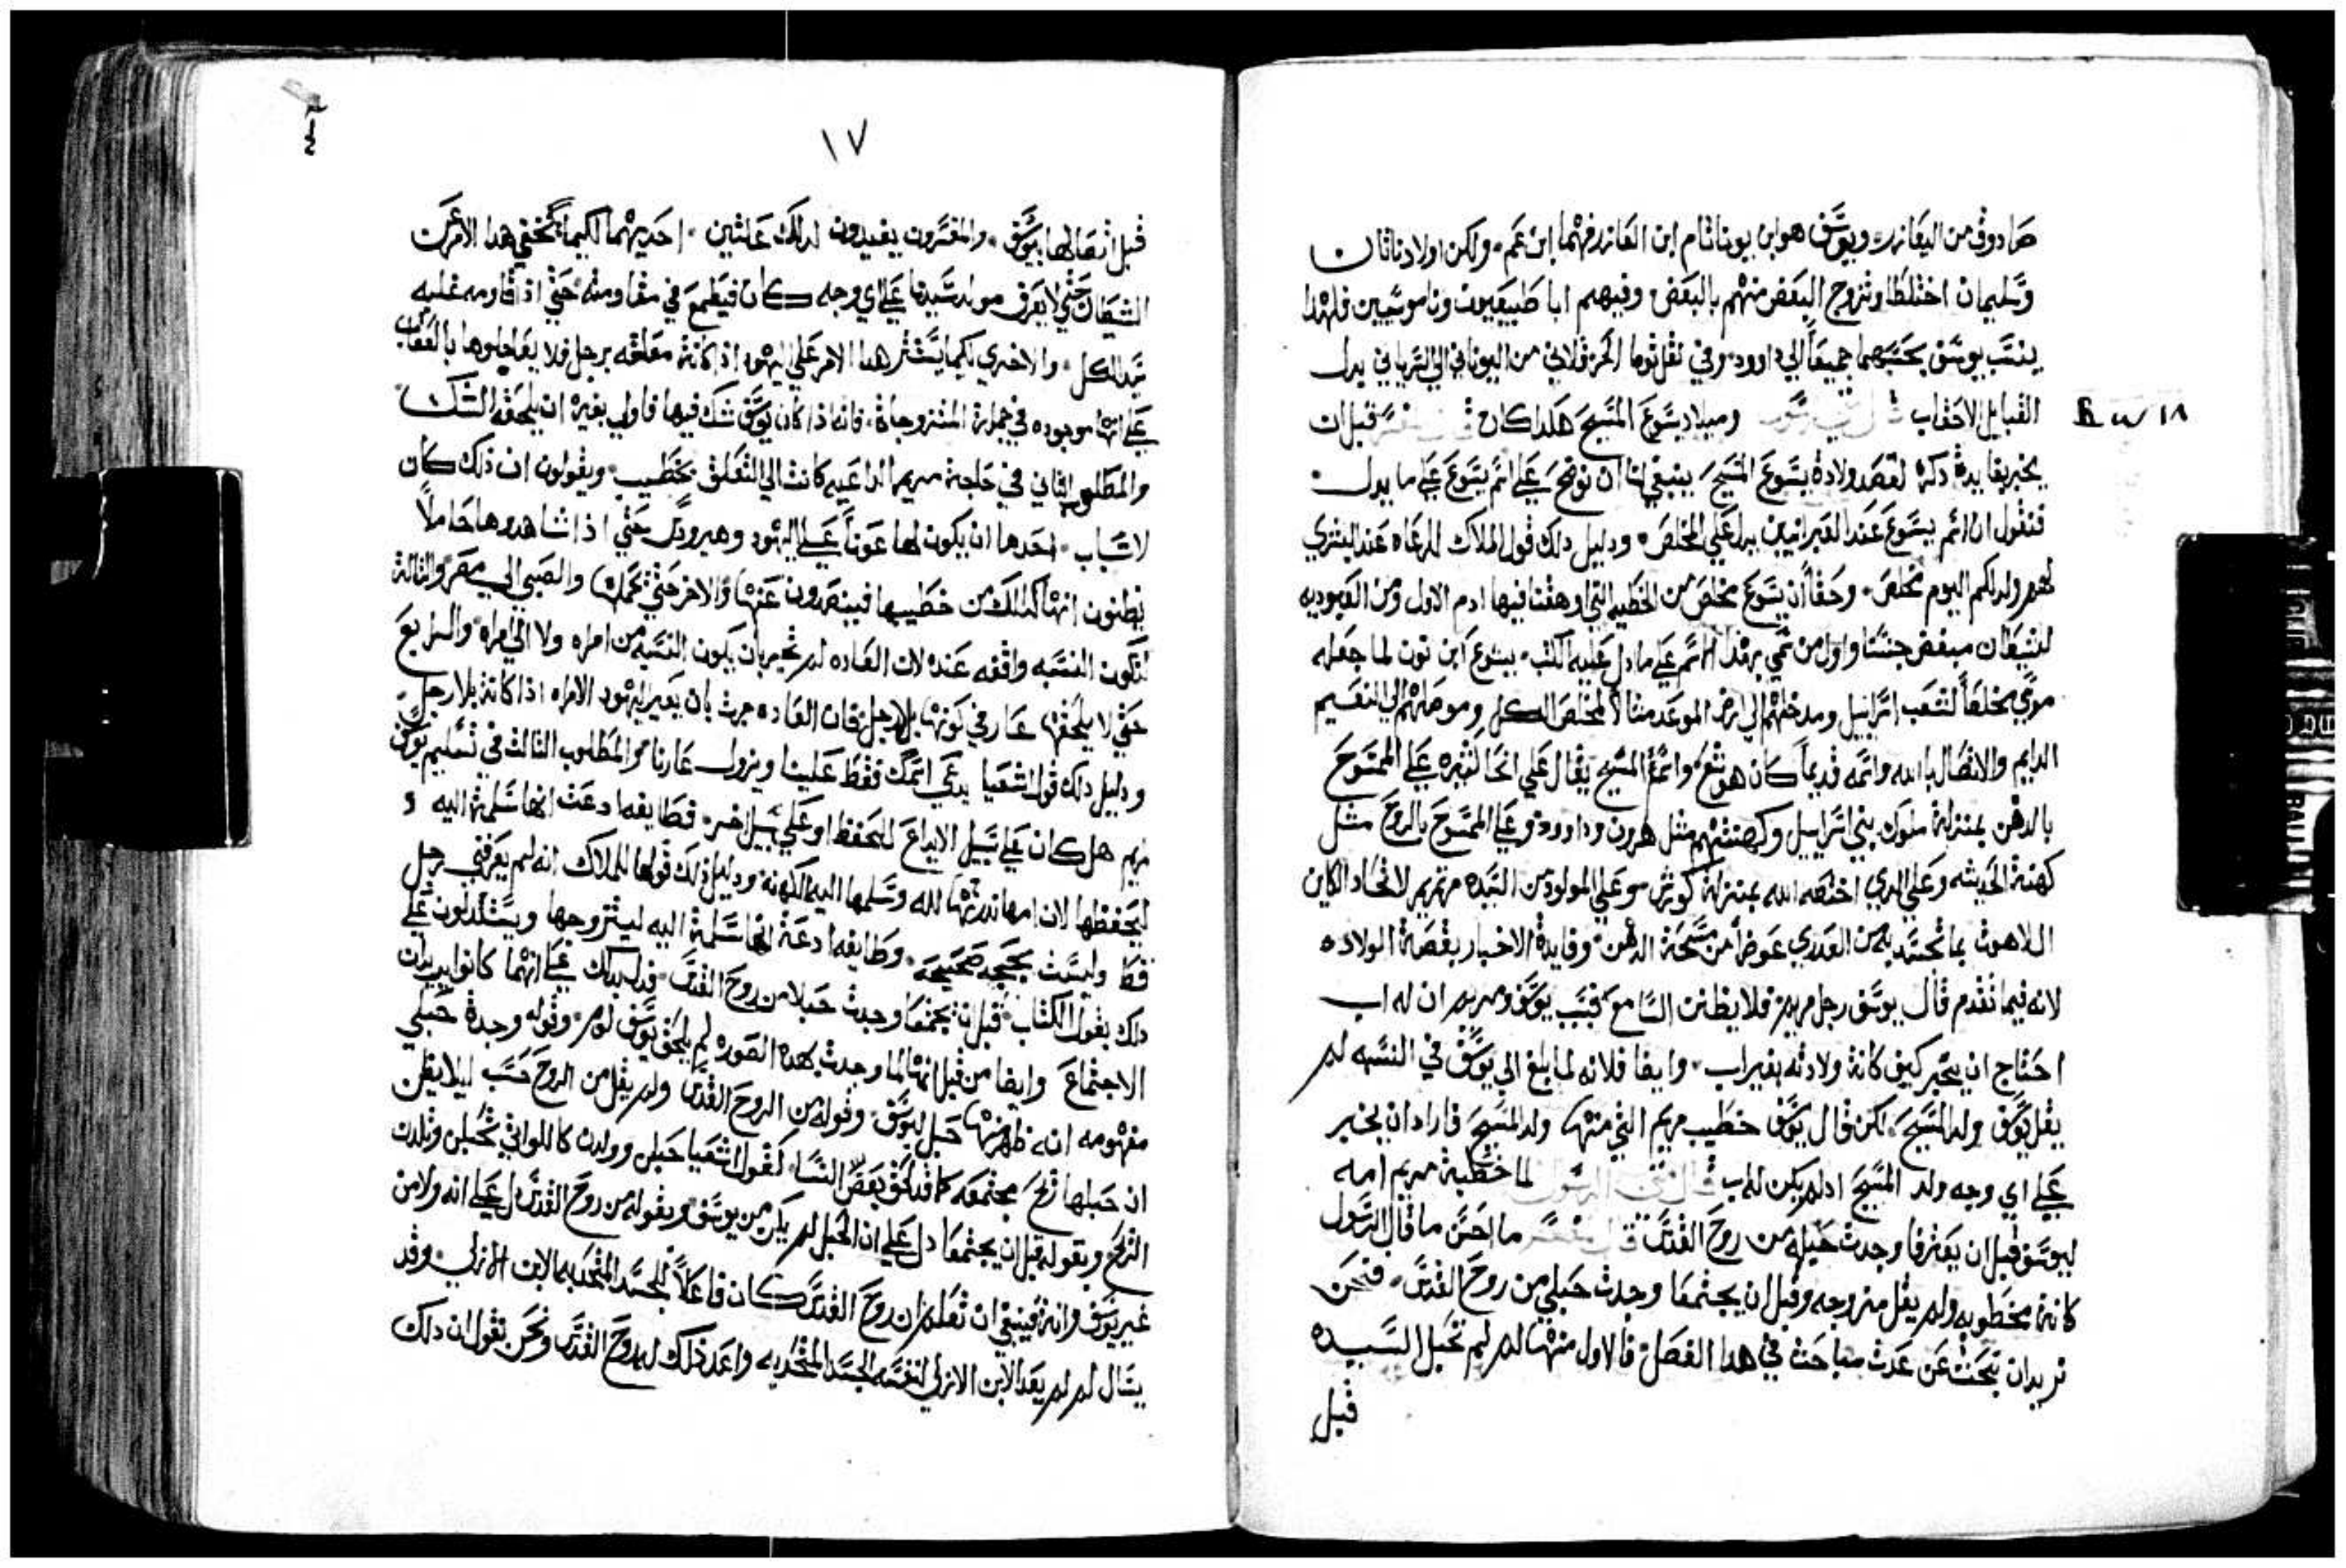 صادوق من اليعازر ويوسف هو ابن يوناثام ابن العازر فهما ابن عم ولكن اولاد ناثان
وسليمان اختلطا وتزوج البعض منهم بالبعض وفيهم ابا طبيعيون وناموسيين فلهذا
ينتسب يوسف بحسبهما جميعاً الي داوود وفي نقل توما الحرقلاني من اليوناني الي السرياني بدل
القبايل الاحقاب قال متي الرسول وميلاد يسوع المسيح هكدا كان قال المفسر قبل ان
يخبر بفايدة دكره لقصد ولادة يسوع المسيح ينبغي لنا ان نوضح علي اسم يسوع علي ما يدل
فنقول ان اسم يسوع عند العبرانيين يدل علي المخلص ودليل دلك قول الملاك للرعاه عند البشري
لهم ولد لكم اليوم مخلص وحقاً ان يسوع مخلص من الخطيه التي اوهقنا فيها ادم الاول ومن العبوديه
للشيطان مبغض جنسنا واول من سمي بهدا الاسم علي ما دل عليه الكتب يشوع ابن نون لما جعله
موسي مخلصاً لشعب اسراييل ومدخلهم الي ارض الموعد مثالاً لمخلص الكل وموصلهم الي النعيم
الدايم والاتصال بالله واسمه قديماً كان هوشع واسم المسيح يقال علي انحا كثيره علي الممسوح
بالدهن بمنزلة ملوك بني اسراييل وكهنتهم مثل هرون وداوود وعلي الممسوح بالروح مثل
كهنة الحديثه وعلي الدي اختصه الله بمنزلة كورش وعلي المولود من السيده مرتمريم لاتحاد الكاين
اللاهوت بما تجسد به من العدري عوضاً من مسحة الدهن وفايدة الاخبار بقصة الولاده
لانه فيما تقدم قال يوسف رجل مريم فلا يظنن السامع بسبب يوسف ومريم ان له اب
احتاج ان يخبر كيف كانة ولادته بغير اب وايضا فلانه لما بلغ الي يوسف في النسبه لم
يقل يوسف ولد المسيح لكن قال يوسف خطيب مريم التي منها ولد المسيح فاراد ان يخبر
علي اي وجه ولد المسيح اد لم يكن له اب قال متي الرسول لما خطبة مريم امه
ليوسف قبل ان يعترفا وجدت حبله من روح القدس قال المفسر ما احسن ما قال الرسول
كانة مخطوبه ولم يقل متزوجه وقبل ان يجتمعا وجدت حبلي من روح القدس فنحن
نريد ان نبحث عن عدت مباحث في هدا الفصل فالاول منها لم لم تحبل السيده
قبل
١٨
١٧
قبل اتصالها بيوسف والمفسرون يفيدون لدلك علتين احديهما لكيما يختفي هدا الامر عن
الشيطان حتي لا يعرف مولد سيدنا علي اي وجه كان فيطمع في مقاومته حتي اذا قاومه غلبه
سيد الكل والاخري لكيما يستتر هدا الامر علي اليهود اذ كانة معلقه برجل فلا يعاجلوها بالعقاب
علي انها موجوده في جملة المتزوجاة فانه اذا كان يوسف شك فيها فاولي بغيره ان يلحقه الشك
والمطلوب الثاني في حاجة مريم الداعيه كانت الي التعلق بخطيب ويقولون ان ذلك كان
لاسباب احدها ان يكون لها عوناً علي اليهود وهيرودس حتي اذا شاهدوها حاملاً
يظنون انها كدلك من خطيبها فينصرون عنها والاخر حتي يحملها والصبي الي مصر والثالثة
لتكون النسبه واقفه عنده لان العاده لم تجر بان يكون النسبه من امراه ولا الي امراه والرابع
حتي لا يلحقها عار في كونها بلا رجل فان العاده جرت بان يعير اليهود الامراه اذا كانة بلا رجل
ودليل دلك قول اشعيا يدعي اسمك فقط علينا ويزول عارنا والمطلوب الثالث في تسليم يوسف
مريم هل كان علي سبيل الايداع للتحفظ او علي سبيل اخر فطايفه ادعت انها سلمة اليه و
ليحفظها لان امها ندرتها لله وسلمها اليه الكهنة ودليل ذلك قولها للملاك انه لم يعرفني رجل
قط وليست بحجه صحيحه وطايفه ادعة انها سلمة اليه ليتزوجها ويستدلون علي
دلك بقول الكتاب قبل ان يجتمعا وجدت حبلا من روح القدس فدل بدلك علي انهما كانوا يريدان
الاجتماع وايضا من قبل انها لما وجدت بهده الصوره لم يلحق يوسف لوم وقوله وجدة حبلي
مفهومه انه ظهر منها حبل ليوسف وقوله من الروح القدس ولم يقل من الروح حسب ليلا يظن
ان حبلها ريح مجتمعه كما قد لحق بعض النسا كقول اشعيا حبلن وولدن كاللواتي تحبلن وتلدن
الريح وبقوله قبل ان يجتمعا دل علي ان الحبل لم يكن من يوسف وبقوله من روح القدس دل علي انه ولا من
غير يوسف وانة فينبغي ان تعلم ان روح القدس كان فاعلاً للجسد المتحد به الابن الازلي وقد
يسال لم لم يعد الابن الازلي لنفسه الجسد المتحد به واعد ذلك له روح القدس ونحن نقول ان دلك